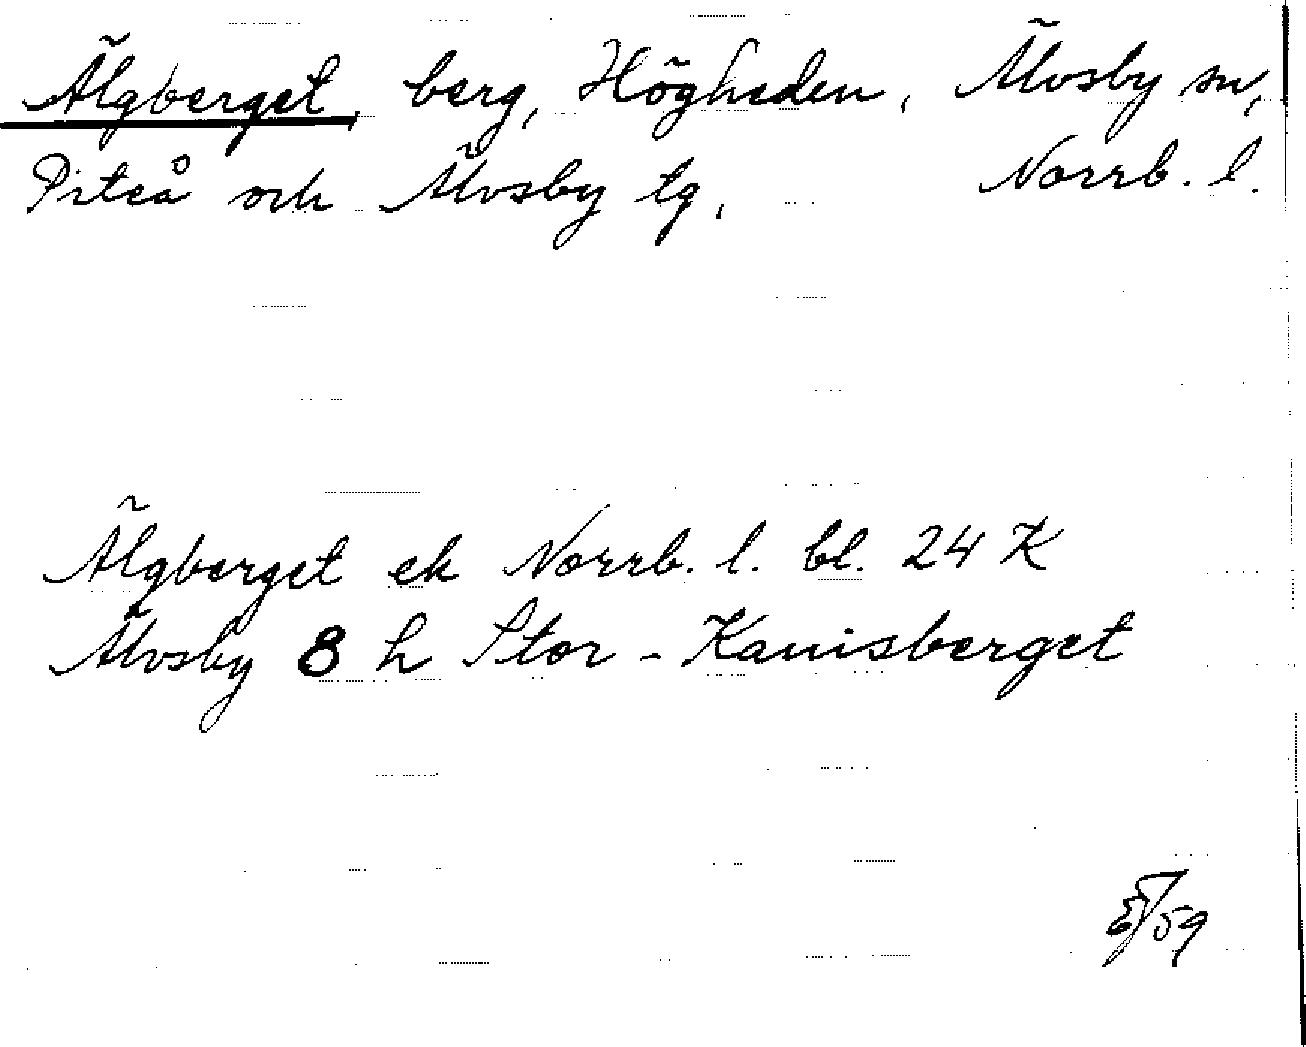 Älgberget, berg, Högheden, Älvsby sn,
Piteå och Älvsby tg, Norrb. l.
Älgberget ek Norrb. l. bl. 24 K
Älvsby 8 h Stor-Kanisberget
/59